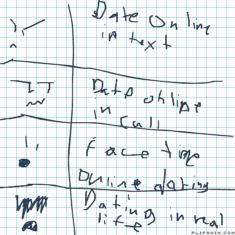 Date Online
in text
Date online
in call
Face time
online dating
Dating in real
life
FLIPANIM.COM